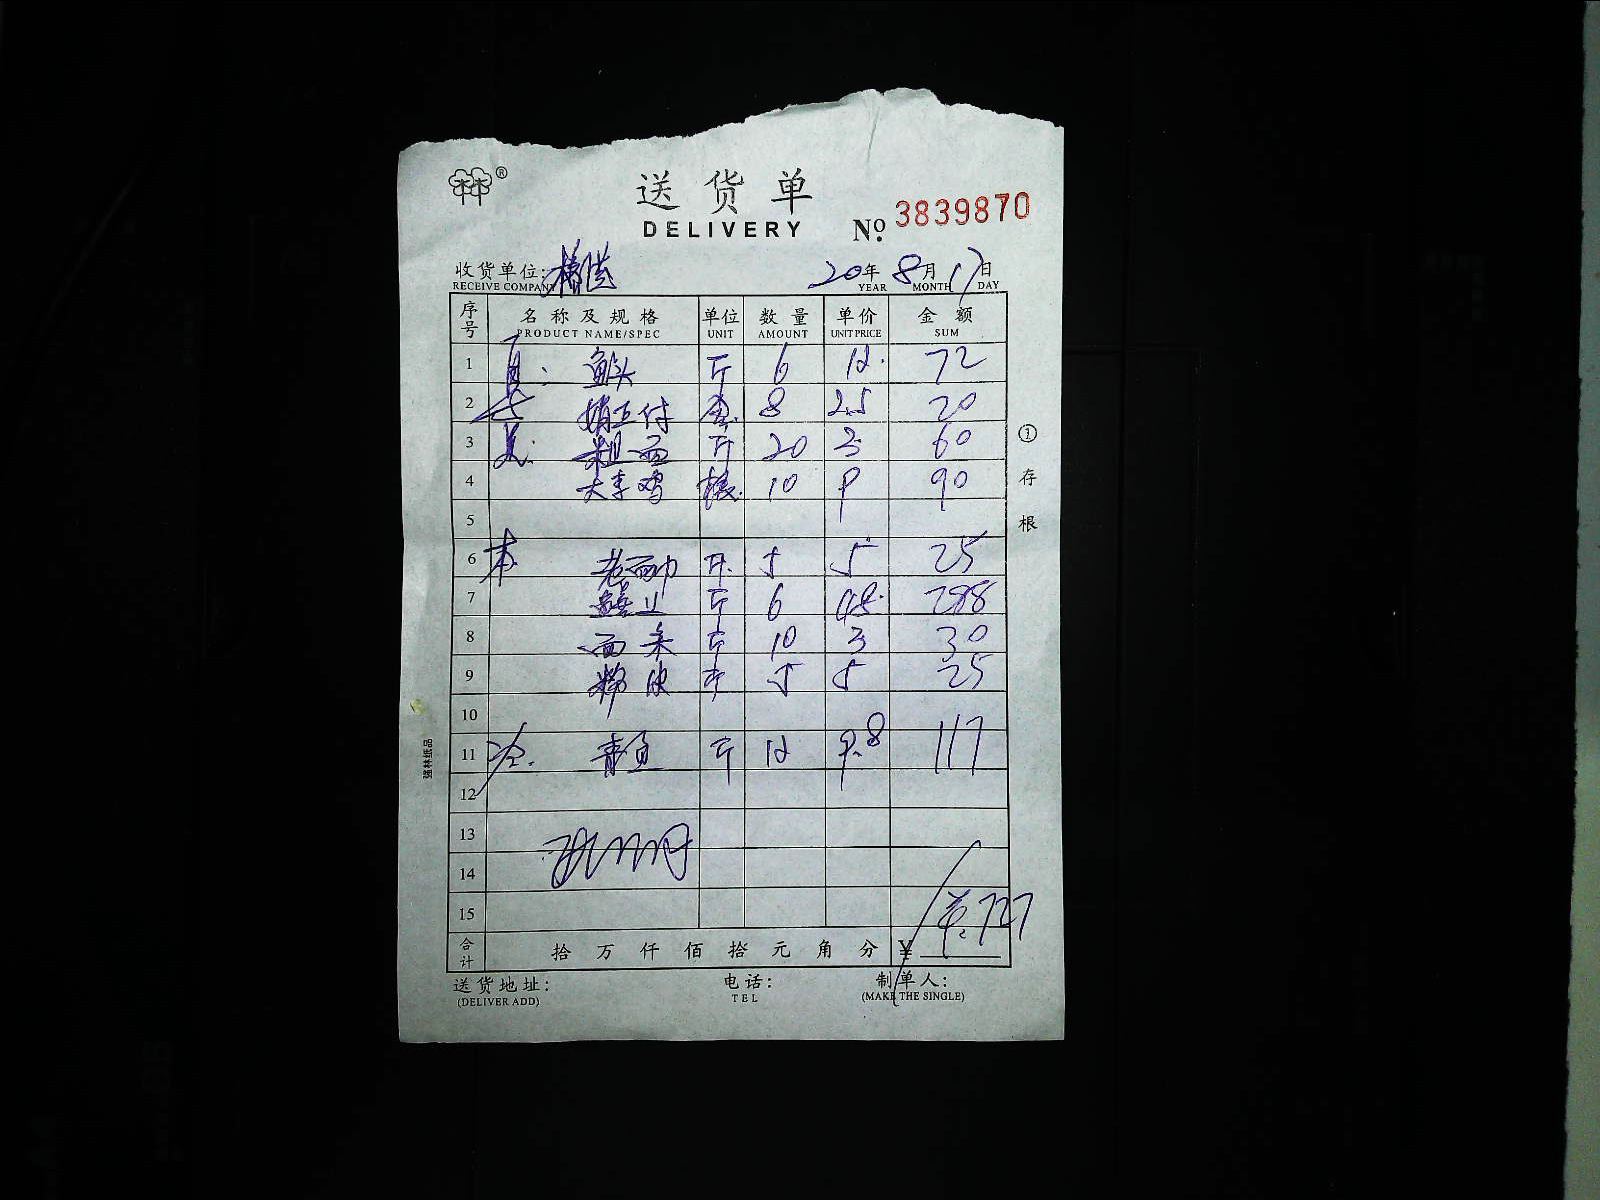 林林®
送货单
DELIVERY
№ 3839870
收货单位: 20年8月17日
RECEIVE COMPANY YEAR MONTH DAY
序号 名称及规格 单位 数量 单价 金额
PRODUCT NAME/SPEC UNIT AMOUNT UNIT PRICE SUM
1 鱼头 斤 6 12. 72
2 8 2.5 20
3 粗面 斤 20 3 60
4 大李鸡 10 9 90
5
6 本 斤 5 5 25
7 斤 6 48. 288
8 面条 斤 10 3 30
9 斤 5 5 25
10
11 青鱼 斤 12 9.8 117
12
13
14
15 727
合计 拾万仟佰拾元角分 ¥
送货地址: 电话: 制单人:
(DELIVER ADD) TEL (MAKE THE SINGLE)
①存根
强林纸品